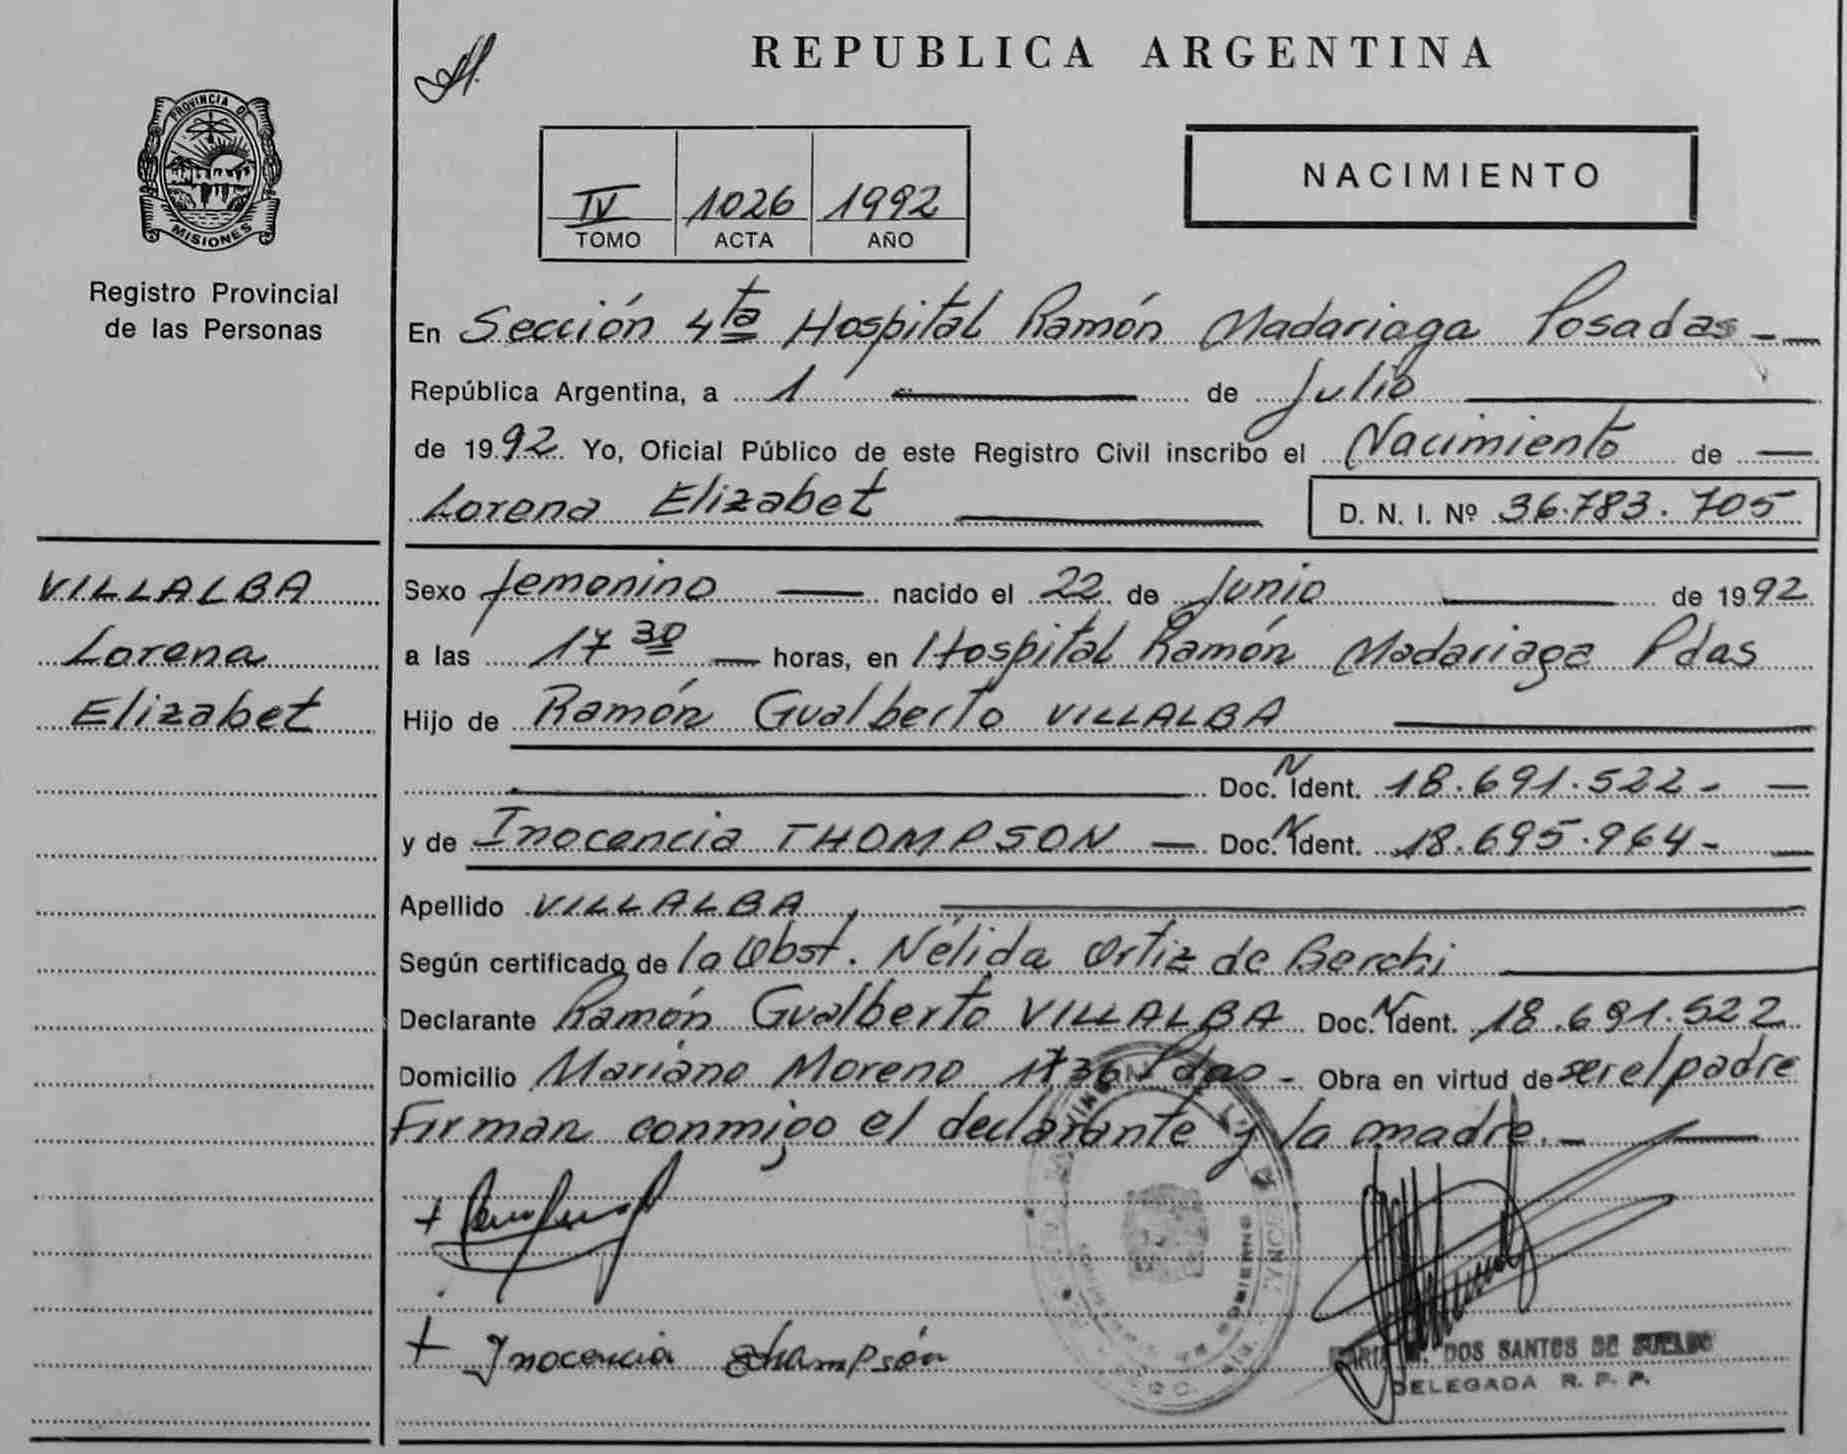 REPUBLICA ARGENTINA
PROVINCIA DE
MISIONES
Registro Provincial
de las Personas
IV 1026 1992
TOMO ACTA AÑO
NACIMIENTO
En Sección 4ta Hospital Ramón Madariaga Posadas
República Argentina, a 1 de Julio
de 1992. Yo, Oficial Público de este Registro Civil inscribo el Nacimiento de
Lorena Elizabet D. N. I. Nº 36.783.705
VILLALBA
Lorena
Elizabet
Sexo femenino nacido el 22 de Junio de 1992
a las 17 30 horas, en Hospital Ramón Madariaga Pdas
Hijo de Ramón Gualberto VILLALBA
Doc. N Ident. 18.691.522-
y de Inocencia THOMPSON Doc. N Ident. 18.695.964-
Apellido VILLALBA
Según certificado de la Obst. Nélida Ortiz de Berchi
Declarante Ramón Gualberto VILLALBA Doc. N Ident. 18.691.522
Domicilio Mariano Moreno 1736 Pdas - Obra en virtud de ser el padre
Firman conmigo el declarante y la madre.-
+
+ Inocencia
DOS SANTOS DE
DELEGADA R. P. P.